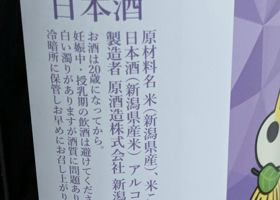 日本酒
原材料名 米(新潟県産)、米こ
日本酒(新潟県産米) アルコ
製造者 原酒造株式会社 新潟
お酒は20歳になってから。
妊娠中・授乳期の飲酒は避けてくださ
白い濁りがありますが酒質に問題あり
冷暗所に保管しお早めにお召し上がり